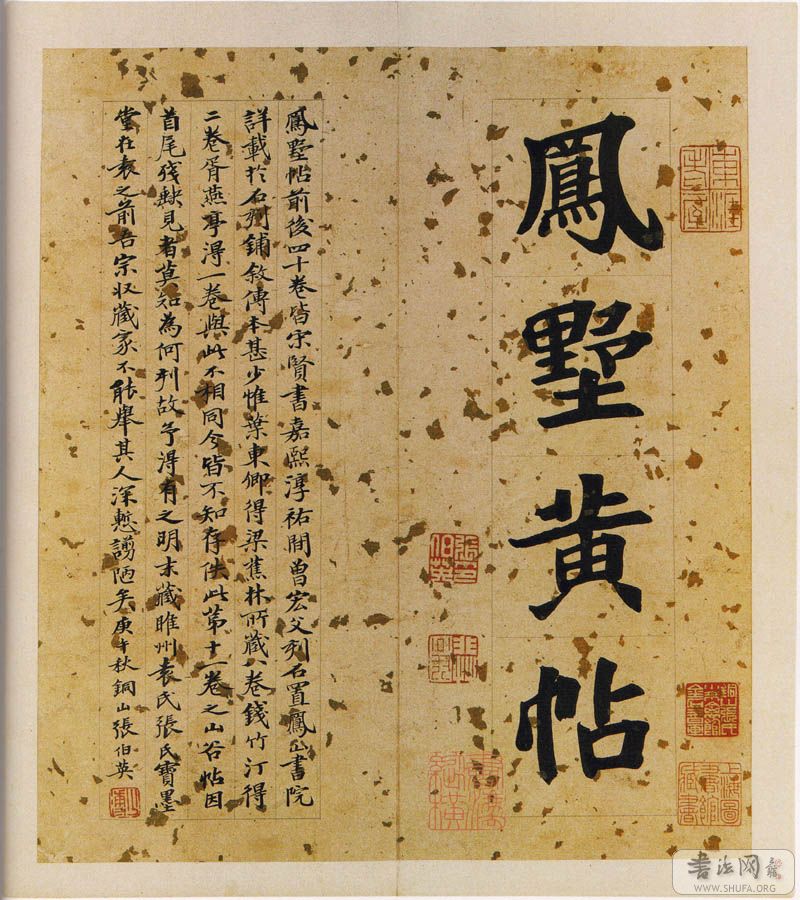 鳳墅黄帖
鳳墅帖前後四十卷皆宗賢書嘉熙淳祐間曾宏父刋石置鳳山書院
詳載於石刻鋪敘傳本甚少惟葉東卿得梁蕉林所藏八卷錢竹汀得
二卷胥燕亭得一卷與此不相同今皆不知存佚此第十一卷之山谷帖因
首尾殘缺見者莫知為何刋故予得有之明末藏睢州袁氏張氏寶墨
堂在袁之前吾宗收藏家不能舉其人深慙謭陋矣庚午秋銅山張伯英
張伯英
上海圖書館藏書
书法网
WWW.SHUFA.ORG